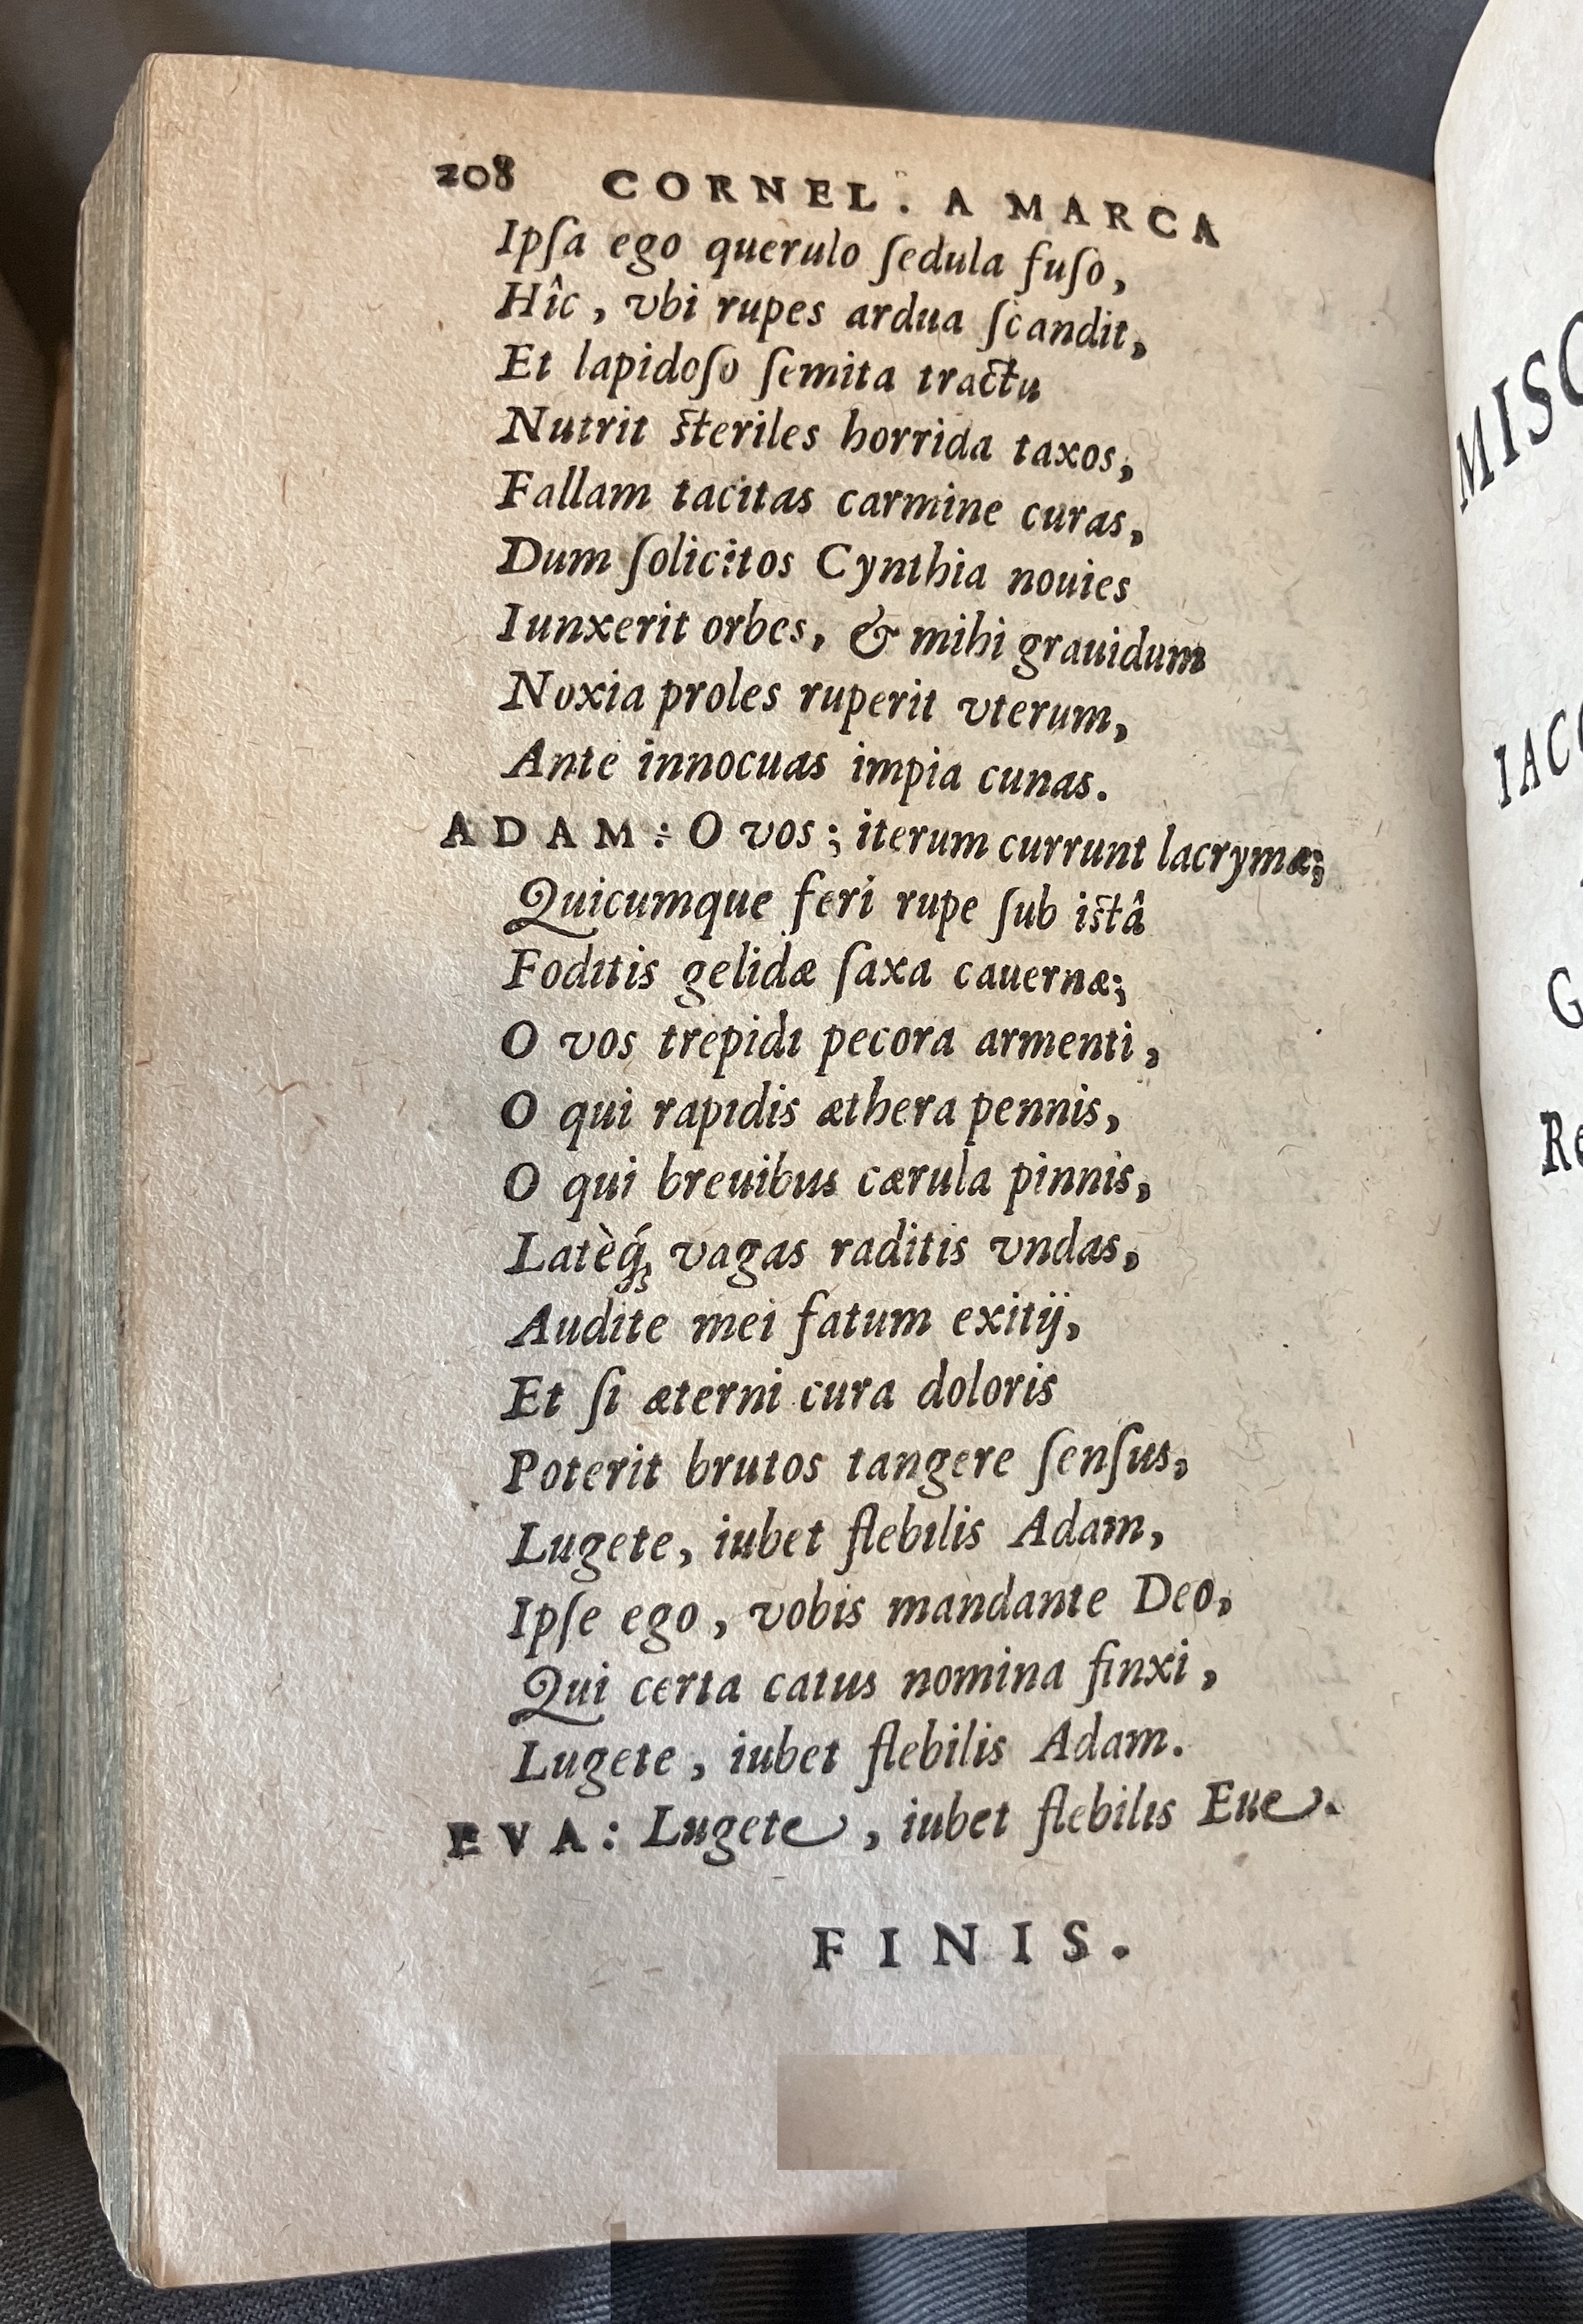 208 CORNEL. A MARCA
Ipſa ego querulo ſedula fuſo,
Hîc, vbi rupes ardua ſcandit,
Et lapidoſo ſemita tractu
Nutrit ſteriles horrida taxos,
Fallam tacitas carmine curas,
Dum ſolicitos Cynthia nouies
Iunxerit orbes, & mihi grauidum
Noxia proles ruperit vterum,
Ante innocuas impia cunas.
ADAM: O vos; iterum currunt lacrymæ;
Quicumque feri rupe ſub iſtâ
Foditis gelidæ ſaxa cauernæ;
O vos trepidi pecora armenti,
O qui rapidis æthera pennis,
O qui breuibus cærula pinnis,
Latèq́; vagas raditis vndas,
Audite mei fatum exitij,
Et ſi æterni cura doloris
Poterit brutos tangere ſenſus,
Lugete, iubet flebilis Adam,
Ipſe ego, vobis mandante Deo,
Qui certa catus nomina finxi,
Lugete, iubet flebilis Adam.
EVA: Lugete, iubet flebilis Eue.
FINIS.
MISC
IACO
G
Re